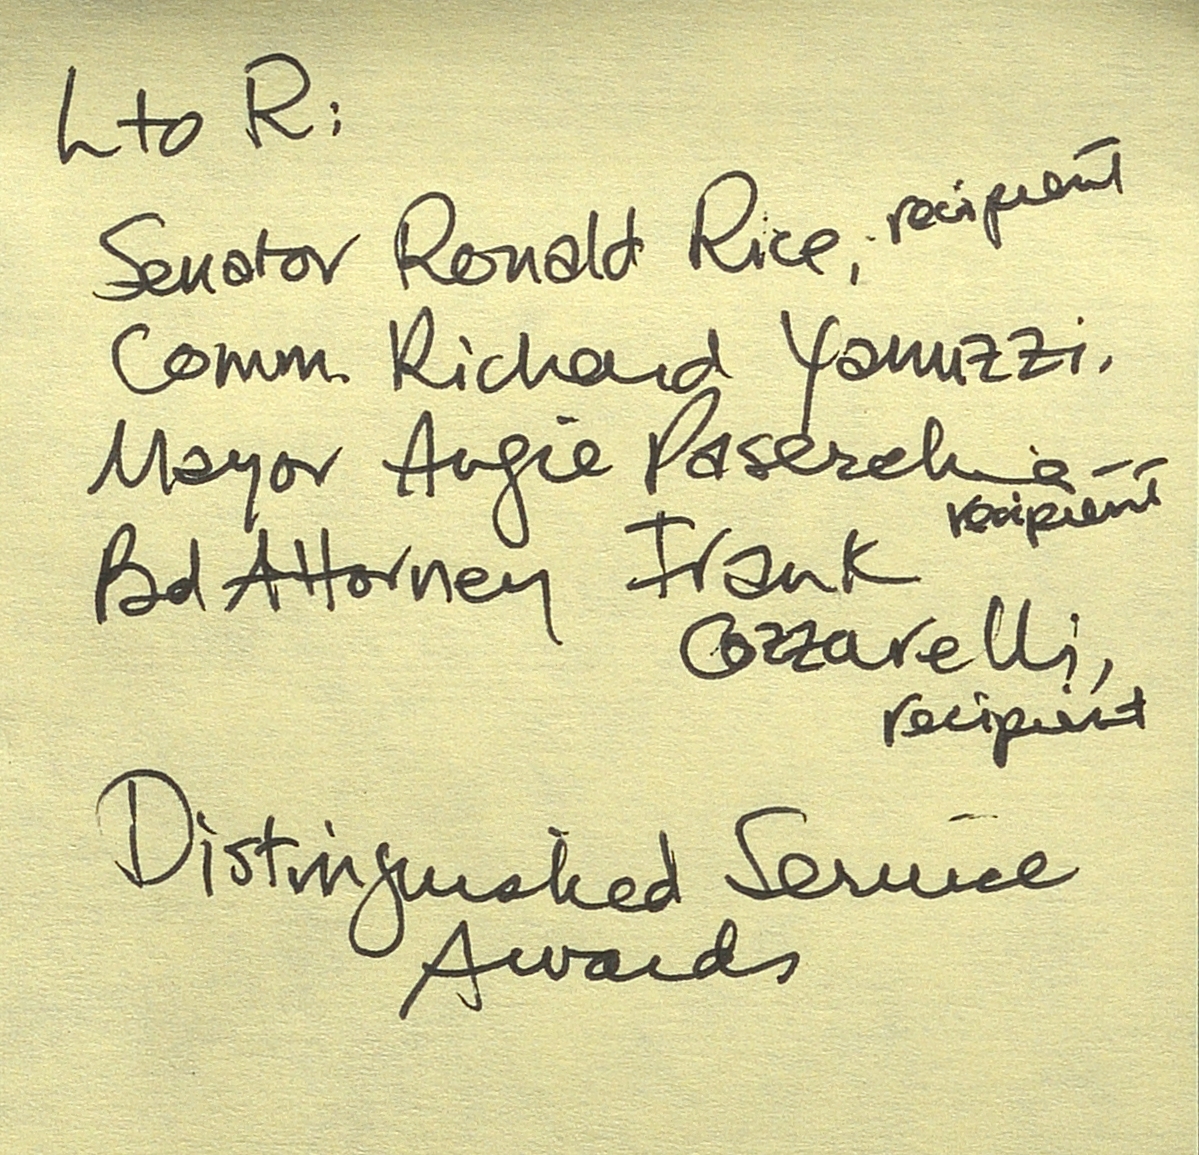 L to R:
Senator Ronald Rice, recipient
Comm. Richard Yanuzzi,
Mayor Angie Paserchia
recipient
Bd Attorney Frank
Cozzarelli,
recipient
Distinguished Service
Awards